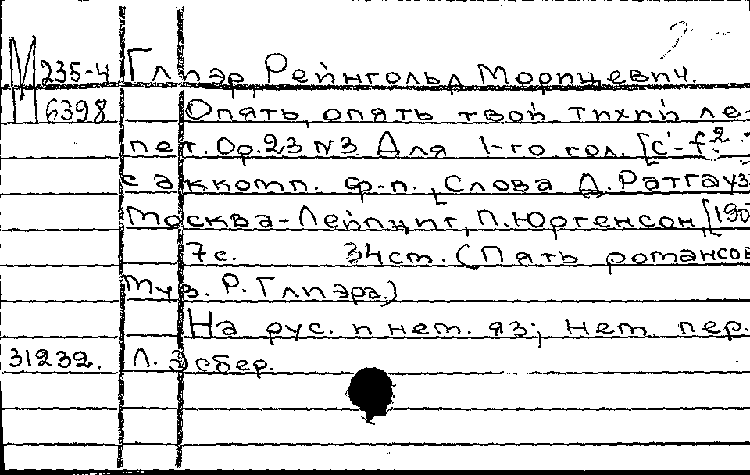 М 235-4 Глиэр, Рейнгольд Морицевич.
6398 Опять, опять твой тихий ле-
пет. Op.23 N3 Для 1-го гол. [c'-f²
с аккомп. ф-п. [Слова Д. Ратгауз
Москва-Лейпциг, П.Юргенсон, [190
7с. 34см. (Пять романсов
Муз. Р. Глиэра.)
На рус. и нем. яз; нем. пер.
31232. Л. Эсбер.